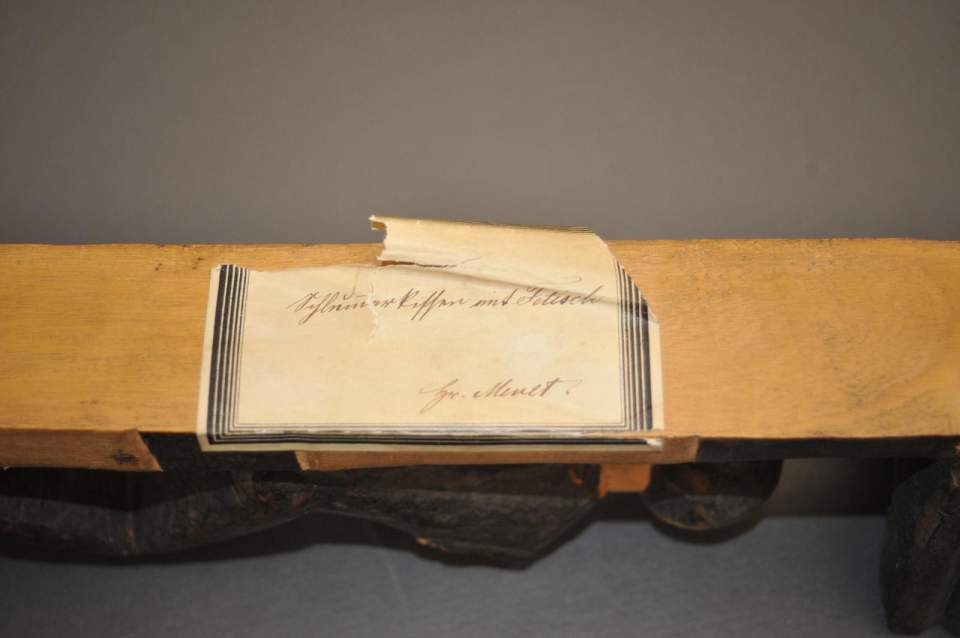 Schlummerkissen mit Fetisch
Hr. Menet